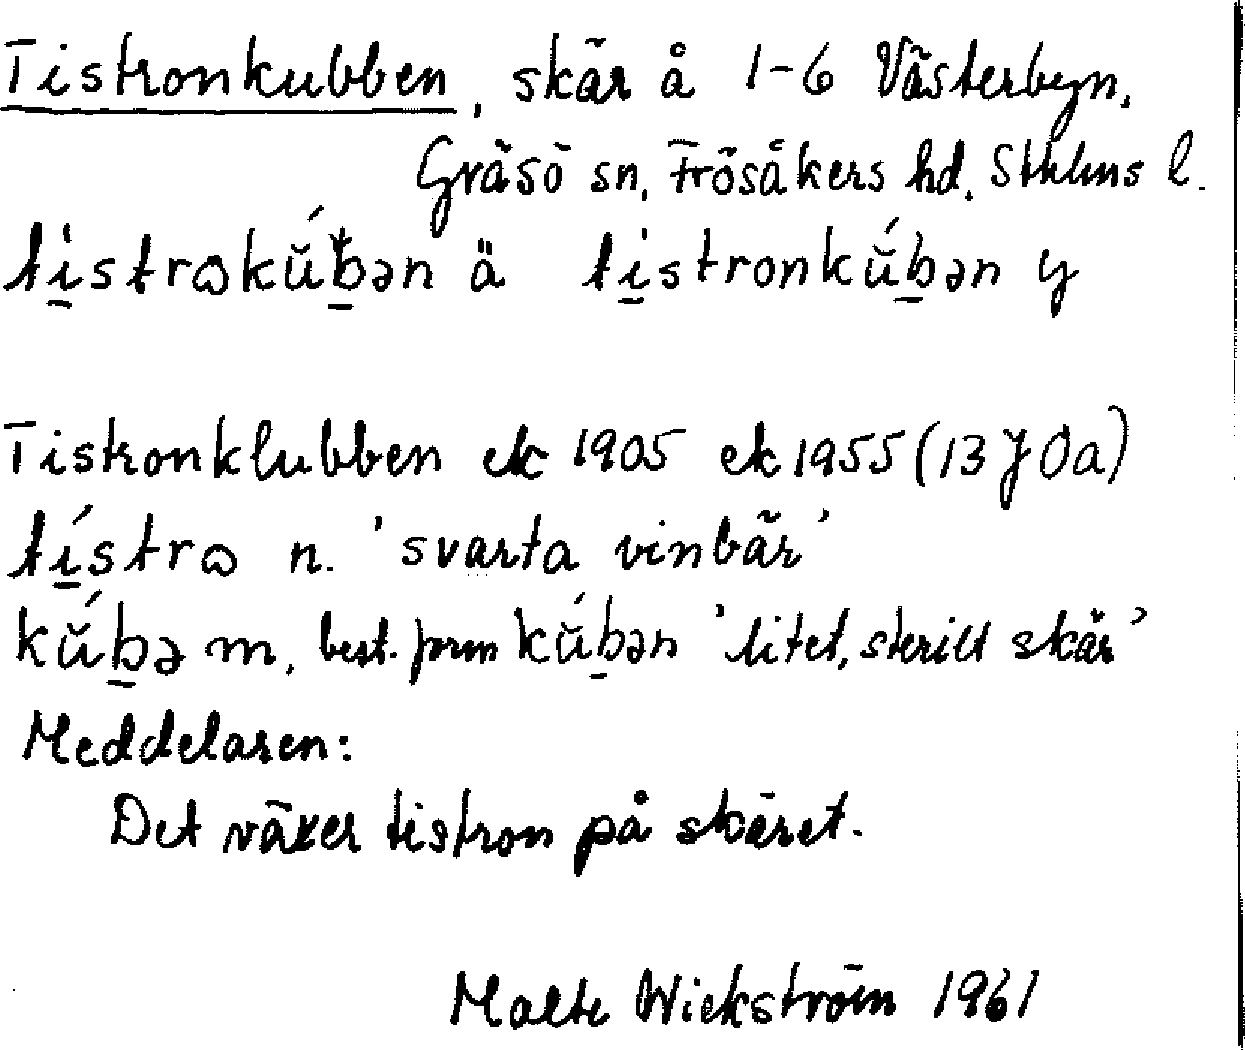 Tistronkubben, skär å 1-6 Västerbyn,
Gräsö sn, Frösåkers hd, Sthlms l.
ti̱strɷkŭ́ḇən ä ti̱stronkŭ́ḇən y
Tistronklubben ek 1905 ek 1955 (13 J 0a)
tí̱strɷ n. 'svarta vinbär'
kŭ́ḇə m, best. form kŭ́ḇən 'litet, sterilt skär'
Meddelaren:
Det växer tistron på skäret.
Malte Wickström 1961